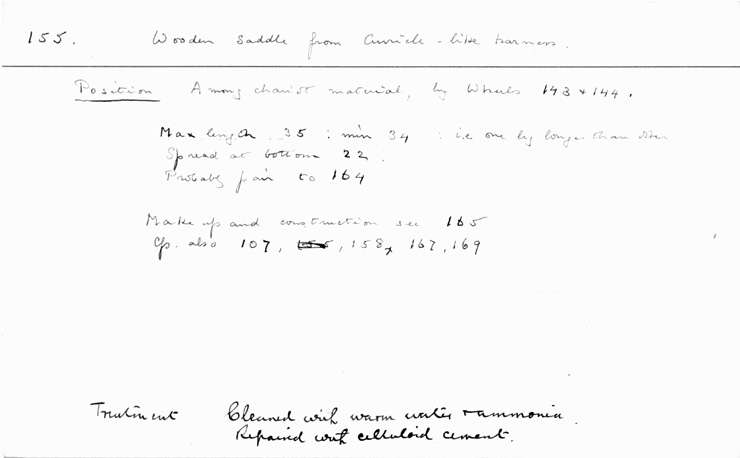 155. Wooden saddle from Curricle-like harness.
Position Among chariot material, by Wheels 143 + 144.
Max length 35 : min 34 : i.e. one leg longer than other
Spread at bottom 22.
Probably pair to 164
Make up and construction see 165
Cp. also 107, 155, 158, 167, 169
Treatment Cleaned with warm water + ammonia.
Repaired with celluloid cement.